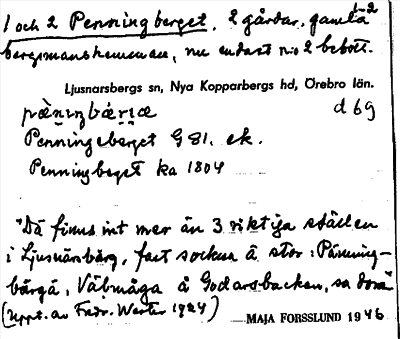 1 och 2 Penningberget. 2 gårdar, gamla
bergsmanshemman, nu endast n:o 2 bebott.
Ljusnarsbergs sn, Nya Kopparbergs hd, Örebro län.
d 69
Penningeberget G 81. ek.
Penningberget ka 1804
"Dä finns int mer än 3 riktiga ställen
i Ljusnanbärg, fast socknen ä stor: Pänning-
bärgä, Välmåga å Godarsbacken, sa domä"
(Uppt. av Fredr. Werter 1924)
MAJA FORSSLUND 1946